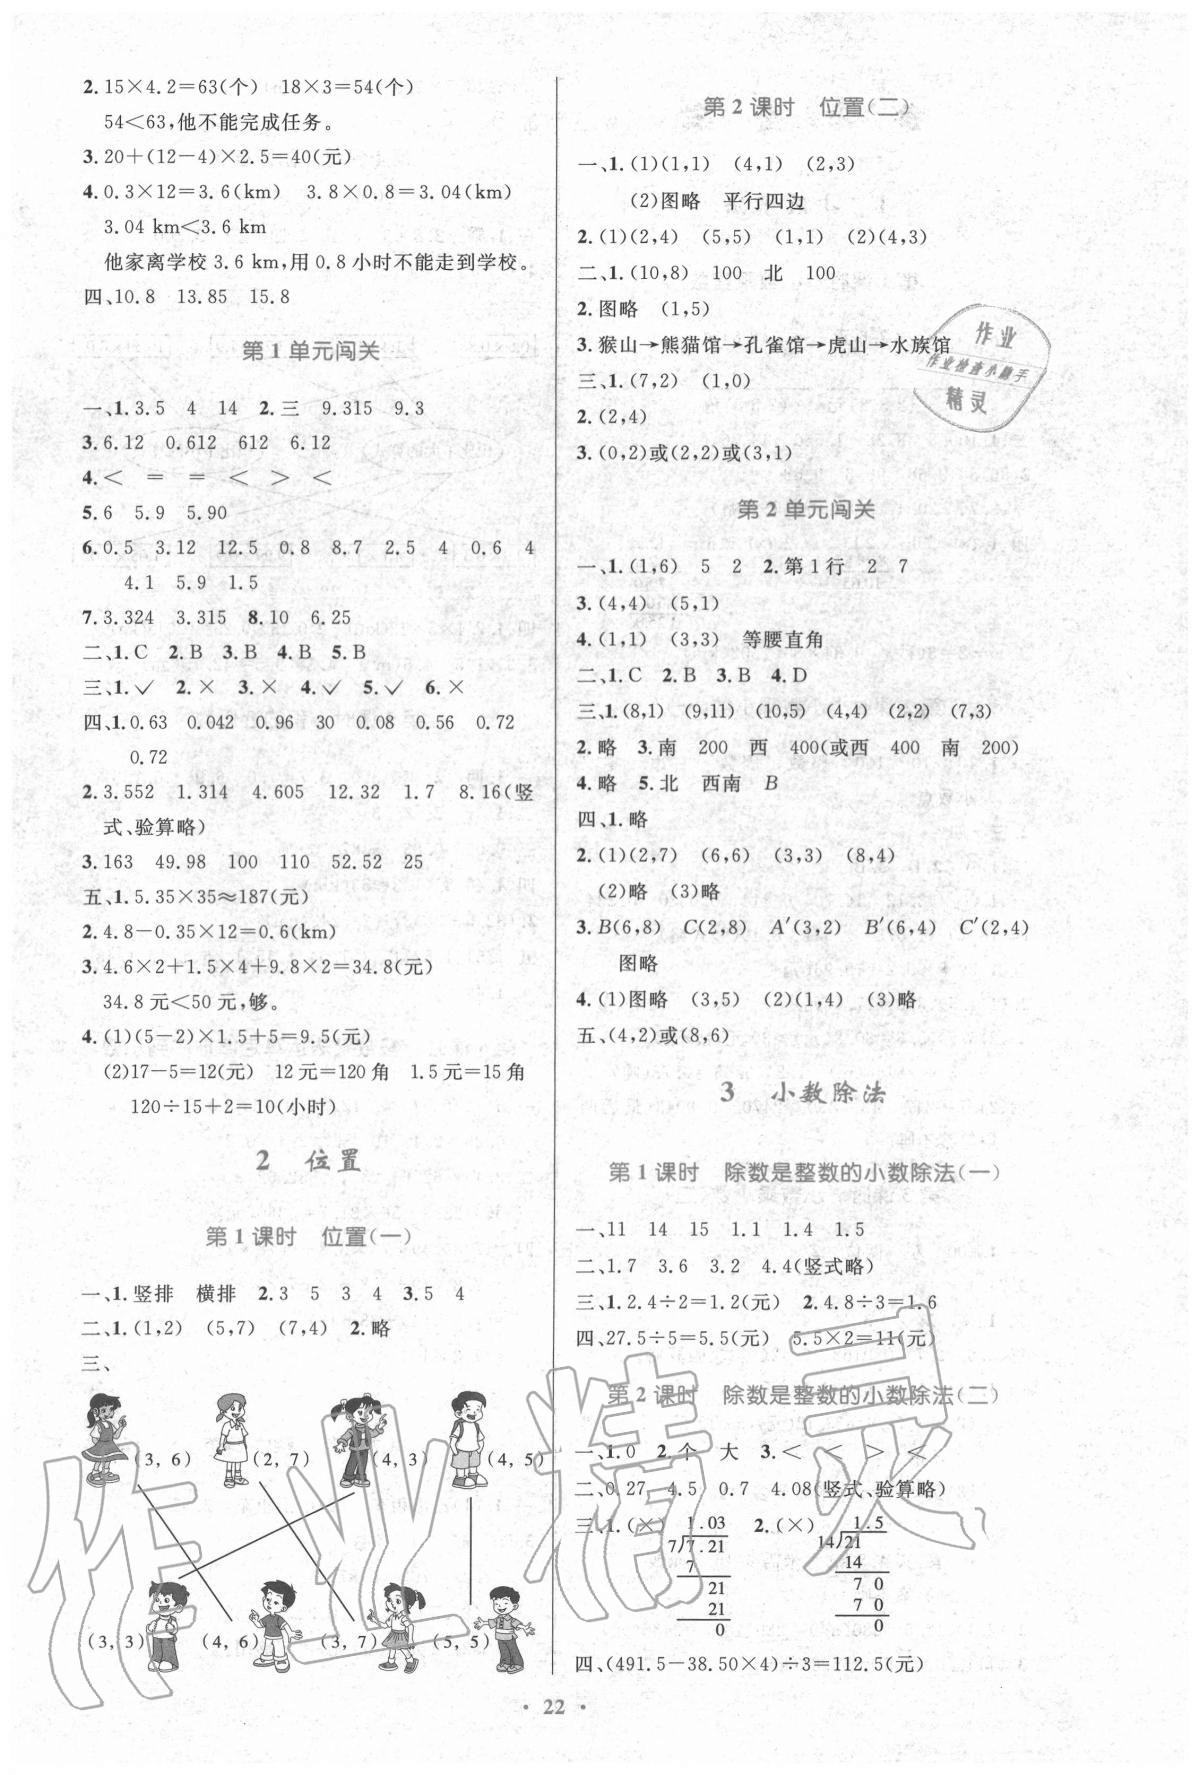 2.15×4.2=63(个) 18×3=54(个)
54<63,他不能完成任务。
3.20+(12-4)×2.5=40(元)
4.0.3×12=3.6(km) 3.8×0.8=3.04(km)
3.04 km<3.6 km
他家离学校 3.6 km,用 0.8 小时不能走到学校。
四、10.8 13.85 15.8
第 1 单元闯关
一、1.3.5 4 14 2.三 9.315 9.3
3.6.12 0.612 612 6.12
4.< = = < > <
5.6 5.9 5.90
6.0.5 3.12 12.5 0.8 8.7 2.5 4 0.6 4
4.1 5.9 1.5
7.3.324 3.315 8.10 6.25
二、1.C 2.B 3.B 4.B 5.B
三、1.✓ 2.× 3.× 4.✓ 5.✓ 6.×
四、1.0.63 0.042 0.96 30 0.08 0.56 0.72
0.72
2.3.552 1.314 4.605 12.32 1.7 8.16(竖
式、验算略)
3.163 49.98 100 110 52.52 25
五、1.5.35×35≈187(元)
2.4.8-0.35×12=0.6(km)
3.4.6×2+1.5×4+9.8×2=34.8(元)
34.8 元<50 元,够。
4.(1)(5-2)×1.5+5=9.5(元)
(2)17-5=12(元) 12 元=120 角 1.5 元=15 角
120÷15+2=10(小时)
2 位置
第 1 课时 位置(一)
一、1.竖排 横排 2.3 5 3 4 3.5 4
二、1.(1,2) (5,7) (7,4) 2.略
三、
(3, 6) (2, 7) (4, 3) (4, 5)
(3, 3) (4, 6) (3, 7) (5, 5)
第 2 课时 位置(二)
一、1.(1)(1,1) (4,1) (2,3)
(2)图略 平行四边
2.(1)(2,4) (5,5) (1,1) (2)(4,3)
二、1.(10,8) 100 北 100
2.图略 (1,5)
3.猴山→熊猫馆→孔雀馆→虎山→水族馆
三、1.(7,2) (1,0)
2.(2,4)
3.(0,2)或(2,2)或(3,1)
作业
作业检查小助手
精灵
第 2 单元闯关
一、1.(1,6) 5 2 2.第 1 行 2 7
3.(4,4) (5,1)
4.(1,1) (3,3) 等腰直角
二、1.C 2.B 3.B 4.D
三、1.(8,1) (9,11) (10,5) (4,4) (2,2) (7,3)
2.略 3.南 200 西 400(或西 400 南 200)
4.略 5.北 西南 B
四、1.略
2.(1)(2,7) (6,6) (3,3) (8,4)
(2)略 (3)略
3.B(6,8) C(2,8) A′(3,2) B′(6,4) C′(2,4)
图略
4.(1)图略 (3,5) (2)(1,4) (3)略
五、(4,2)或(8,6)
3 小数除法
第 1 课时 除数是整数的小数除法(一)
一、11 14 15 1.1 1.4 1.5
二、1.7 3.6 3.2 4.4(竖式略)
三、1.2.4÷2=1.2(元) 2.4.8÷3=1.6
四、27.5÷5=5.5(元) 5.5×2=11(元)
第 2 课时 除数是整数的小数除法(二)
一、1.0 2.个 大 3.< < > <
二、0.27 4.5 0.7 4.08(竖式、验算略)
三、1.(×) 1.03 2.(×) 1.5
7 7.21 14 21
7 14
21 7 0
21 7 0
0 0
四、(491.5-38.50×4)÷3=112.5(元)
· 22 ·
作业精灵